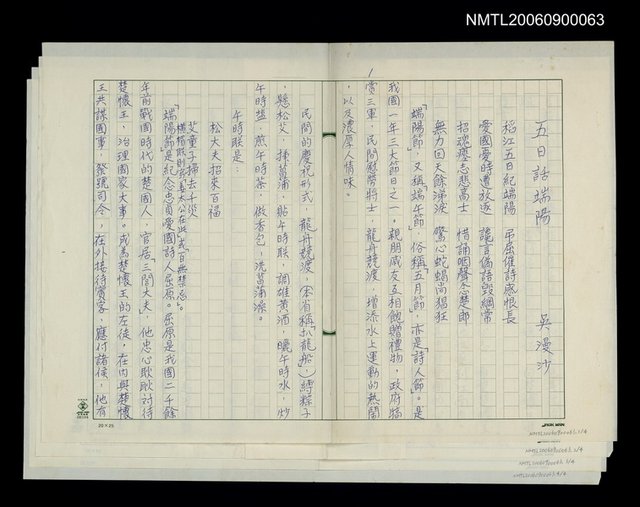 NMTL20060900063
五日話端陽
吳漫沙
稻江五日紀端陽 弔屈催詩感恨長
愛國憂時遭放逐 讒言偽語毀綱常
招魂瘞志悲高士 惜誦唱聲吊楚郎
無力回天餘涕淚 驚心蛇蝎尚猖狂
「端陽節」,又稱「端午節」,俗稱「五月節」,亦是「詩人節」。是
我國一年三大節日之一。親朋戚友互相餽贈禮物,政府犒
賞三軍,民間慰勞將士,龍舟競渡,增添水上運動的熱鬧
,以及濃厚人情味。
民間的慶祝形式,龍舟競渡,(本省稱「扒龍船」)縛粽子
,懸松艾,插菖蒲,貼午時联,調雄黃酒,曬午時水,炒
午時盐,煎午時茶,做香包,洗菖蒲澡。
午時联是:
松大夫招來百福
艾童子掃去千災
橫楣聯則常「姜太公在此」或「百無禁忌」。
「端陽節」是紀念忠貞愛國詩人屈原。屈原是我國二千餘
年前戰國時代的楚國人,官居三閭大夫,他忠心耿耿对待
楚懷王,治理國家大事。成為楚懷王的左徒,在內與楚懷
王共謀國事,發號司令,在外接待賓客,應付諸侯,他有
20×25
NMTL20060900063.1/4
NMTL20060900063.2/4
NMTL20060900063.3/4
NMTL20060900063.4/4